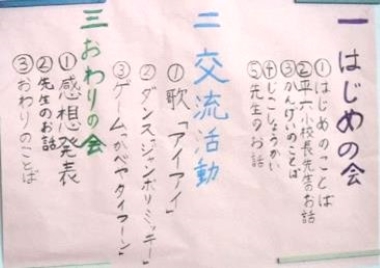 一 はじめの会
①はじめのことば
②平六小校長先生のお話
③かんげいのことば
④じこしょうかい
⑤先生のお話
二 交流活動
①歌「アイアイ」
②ダンス「ジャンボリミッキー」
③ゲーム「かべやタイフーン」
三 おわりの会
①感想発表
②先生のお話
③おわりのことば